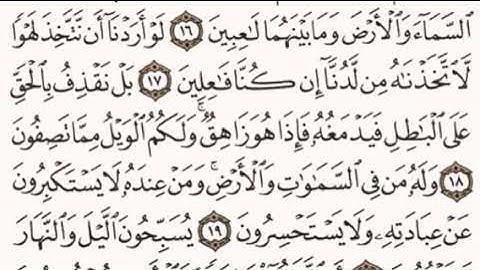 السَّمَآءَ وَالْأَرْضَ وَمَا بَيْنَهُمَا لَـٰعِبِينَ ١٦ لَوْ أَرَدْنَآ أَن نَّتَّخِذَ لَهْوًا
لَّاتَّخَذْنَـٰهُ مِن لَّدُنَّآ إِن كُنَّا فَـٰعِلِينَ ١٧ بَلْ نَقْذِفُ بِالْحَقِّ
عَلَى الْبَـٰطِلِ فَيَدْمَغُهُۥ فَإِذَا هُوَ زَاهِقٌ ۚ وَلَكُمُ الْوَيْلُ مِمَّا تَصِفُونَ
١٨ وَلَهُۥ مَن فِي السَّمَـٰوَٰتِ وَالْأَرْضِ ۚ وَمَنْ عِندَهُۥ لَا يَسْتَكْبِرُونَ
عَنْ عِبَادَتِهِۦ وَلَا يَسْتَحْسِرُونَ ١٩ يُسَبِّحُونَ الَّيْلَ وَالنَّهَارَ